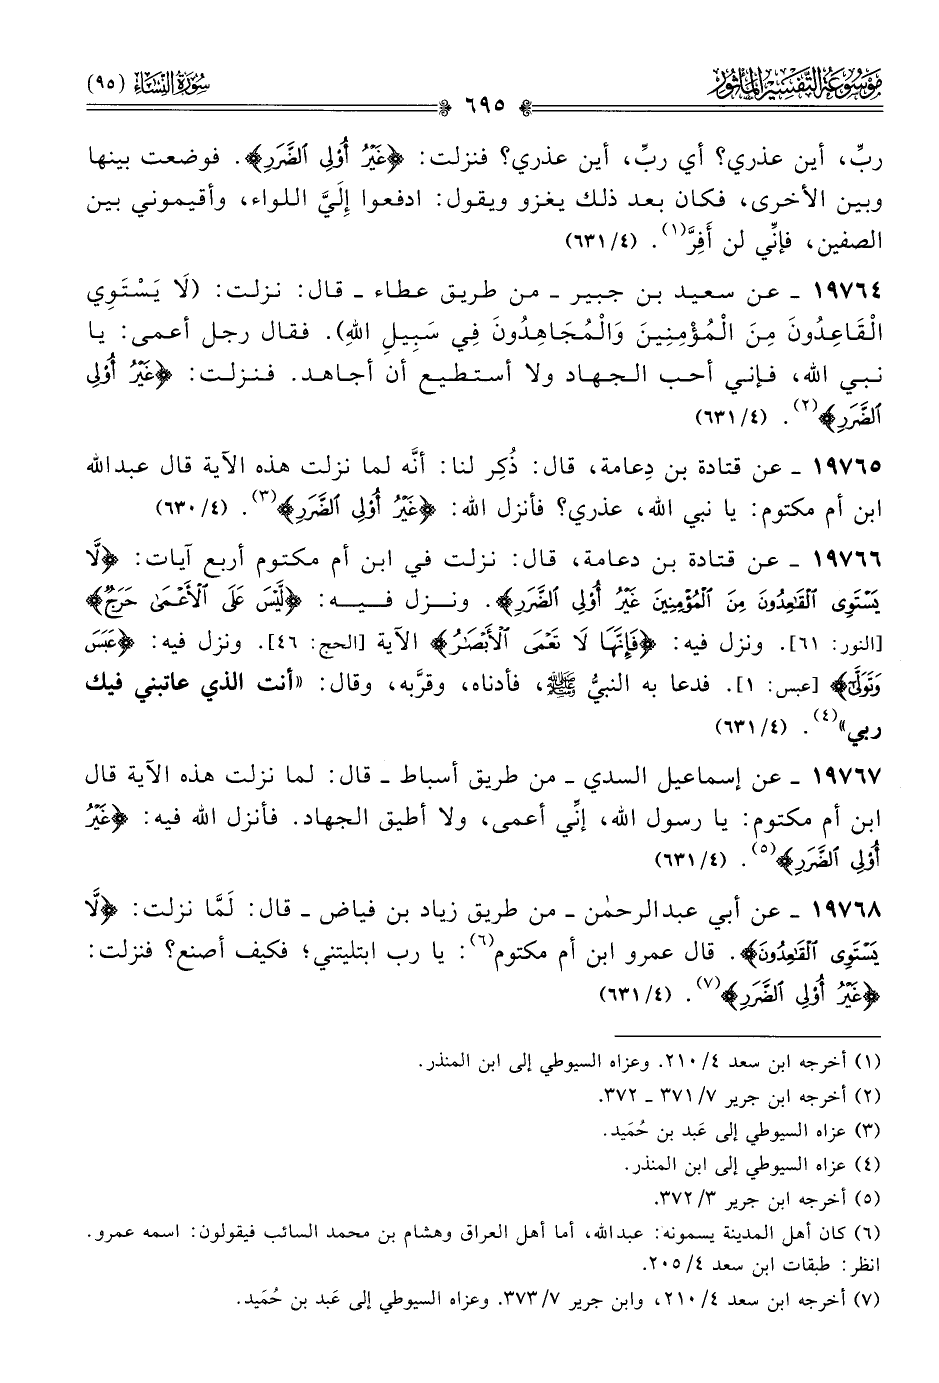 موسوعة التفسير المأثور
سورة النساء (٩٥)
٦٩٥
ربِّ، أين عذري؟ أي ربِّ، أين عذري؟ فنزلت: ﴿غَيْرُ أُوْلِي ٱلضَّرَرِ﴾. فوضعت بينها
وبين الأخرى، فكان بعد ذلك يغزو ويقول: ادفعوا إِلَيَّ اللواء، وأقيموني بين
الصفين، فإنِّي لن أَفِرَّ(١). (٤/ ٦٣١)
١٩٧٦٤ ـ عن سعيد بن جبير ـ من طريق عطاء ـ قال: نزلت: (لَا يَسْتَوِي
الْقَاعِدُونَ مِنَ الْمُؤْمِنِينَ وَالْمُجَاهِدُونَ فِي سَبِيلِ اللهِ). فقال رجل أعمى: يا
نبي الله، فإني أحب الجهاد ولا أستطيع أن أجاهد. فنزلت: ﴿غَيْرُ أُوْلِي
ٱلضَّرَرِ﴾(٢). (٤/ ٦٣١)
١٩٧٦٥ ـ عن قتادة بن دِعامة، قال: ذُكِر لنا: أنَّه لما نزلت هذه الآية قال عبدالله
ابن أم مكتوم: يا نبي الله، عذري؟ فأنزل الله: ﴿غَيْرُ أُوْلِي ٱلضَّرَرِ﴾(٣). (٤/ ٦٣٠)
١٩٧٦٦ ـ عن قتادة بن دعامة، قال: نزلت في ابن أم مكتوم أربع آيات: ﴿لَّا
يَسْتَوِي ٱلْقَٰعِدُونَ مِنَ ٱلْمُؤْمِنِينَ غَيْرُ أُوْلِي ٱلضَّرَرِ﴾. ونـزل فـيـه: ﴿لَّيْسَ عَلَى ٱلْأَعْمَىٰ حَرَجٌ﴾
[النور: ٦١]. ونزل فيه: ﴿فَإِنَّهَا لَا تَعْمَى ٱلْأَبْصَٰرُ﴾ الآية [الحج: ٤٦]. ونزل فيه: ﴿عَبَسَ
وَتَوَلَّىٰٓ﴾ [عبس: ١]. فدعا به النبيُّ ﷺ، فأدناه، وقرَّبه، وقال: «أنت الذي عاتبني فيك
ربي»(٤). (٤/ ٦٣١)
١٩٧٦٧ ـ عن إسماعيل السدي ـ من طريق أسباط ـ قال: لما نزلت هذه الآية قال
ابن أم مكتوم: يا رسول الله، إنِّي أعمى، ولا أطيق الجهاد. فأنزل الله فيه: ﴿غَيْرُ
أُوْلِي ٱلضَّرَرِ﴾(٥). (٤/ ٦٣١)
١٩٧٦٨ ـ عن أبي عبدالرحمٰن ـ من طريق زياد بن فياض ـ قال: لَمَّا نزلت: ﴿لَّا
يَسْتَوِي ٱلْقَٰعِدُونَ﴾. قال عمرو ابن أم مكتوم(٦): يا رب ابتليتني؛ فكيف أصنع؟ فنزلت:
﴿غَيْرُ أُوْلِي ٱلضَّرَرِ﴾(٧). (٤/ ٦٣١)
(١) أخرجه ابن سعد ٤/ ٢١٠. وعزاه السيوطي إلى ابن المنذر.
(٢) أخرجه ابن جرير ٧/ ٣٧١ ـ ٣٧٢.
(٣) عزاه السيوطي إلى عَبد بن حُمَيد.
(٤) عزاه السيوطي إلى ابن المنذر.
(٥) أخرجه ابن جرير ٣/ ٣٧٢.
(٦) كان أهل المدينة يسمونه: عبدالله، أما أهل العراق وهشام بن محمد السائب فيقولون: اسمه عمرو.
انظر: طبقات ابن سعد ٤/ ٢٠٥.
(٧) أخرجه ابن سعد ٤/ ٢١٠، وابن جرير ٧/ ٣٧٣. وعزاه السيوطي إلى عَبد بن حُمَيد.